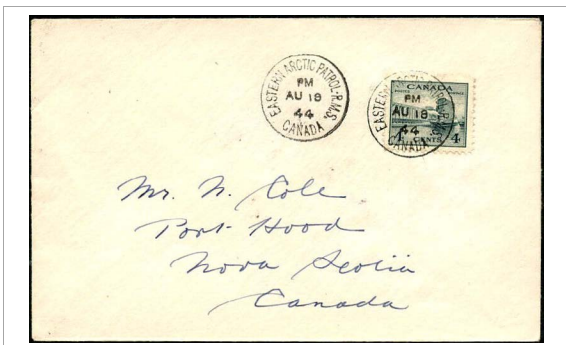 EASTERN ARCTIC PATROL-R.M.S.
PM
AU 18
44
CANADA
EASTERN ARCTIC
PM
AU 18
44
CANADA
CANADA
4 CENTS 4
Mr. N. Cole
Port Hood
Nova Scotia
Canada